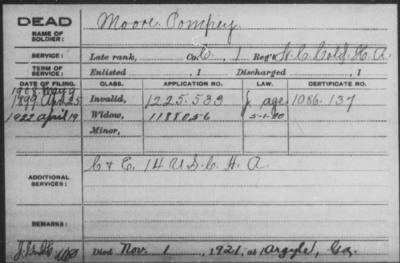 DEAD
NAME OF SOLDIER: Moore Pompey
SERVICE: Late rank, Co. C, 1 Reg't N.C. Cold. H. A.
TERM OF SERVICE: Enlisted , 1 Discharged , 1
DATE OF FILING. CLASS. APPLICATION NO. LAW. CERTIFICATE NO.
1899 Apr. 25 Invalid, 1225.533 age 1086.137
1922 April 19 Widow, 1188056 5-1-20
Minor,
ADDITIONAL SERVICES: C & E, 14 U.S.C.H.A.
REMARKS:
Died Nov. 1, 1921, at Argyle, Ga.